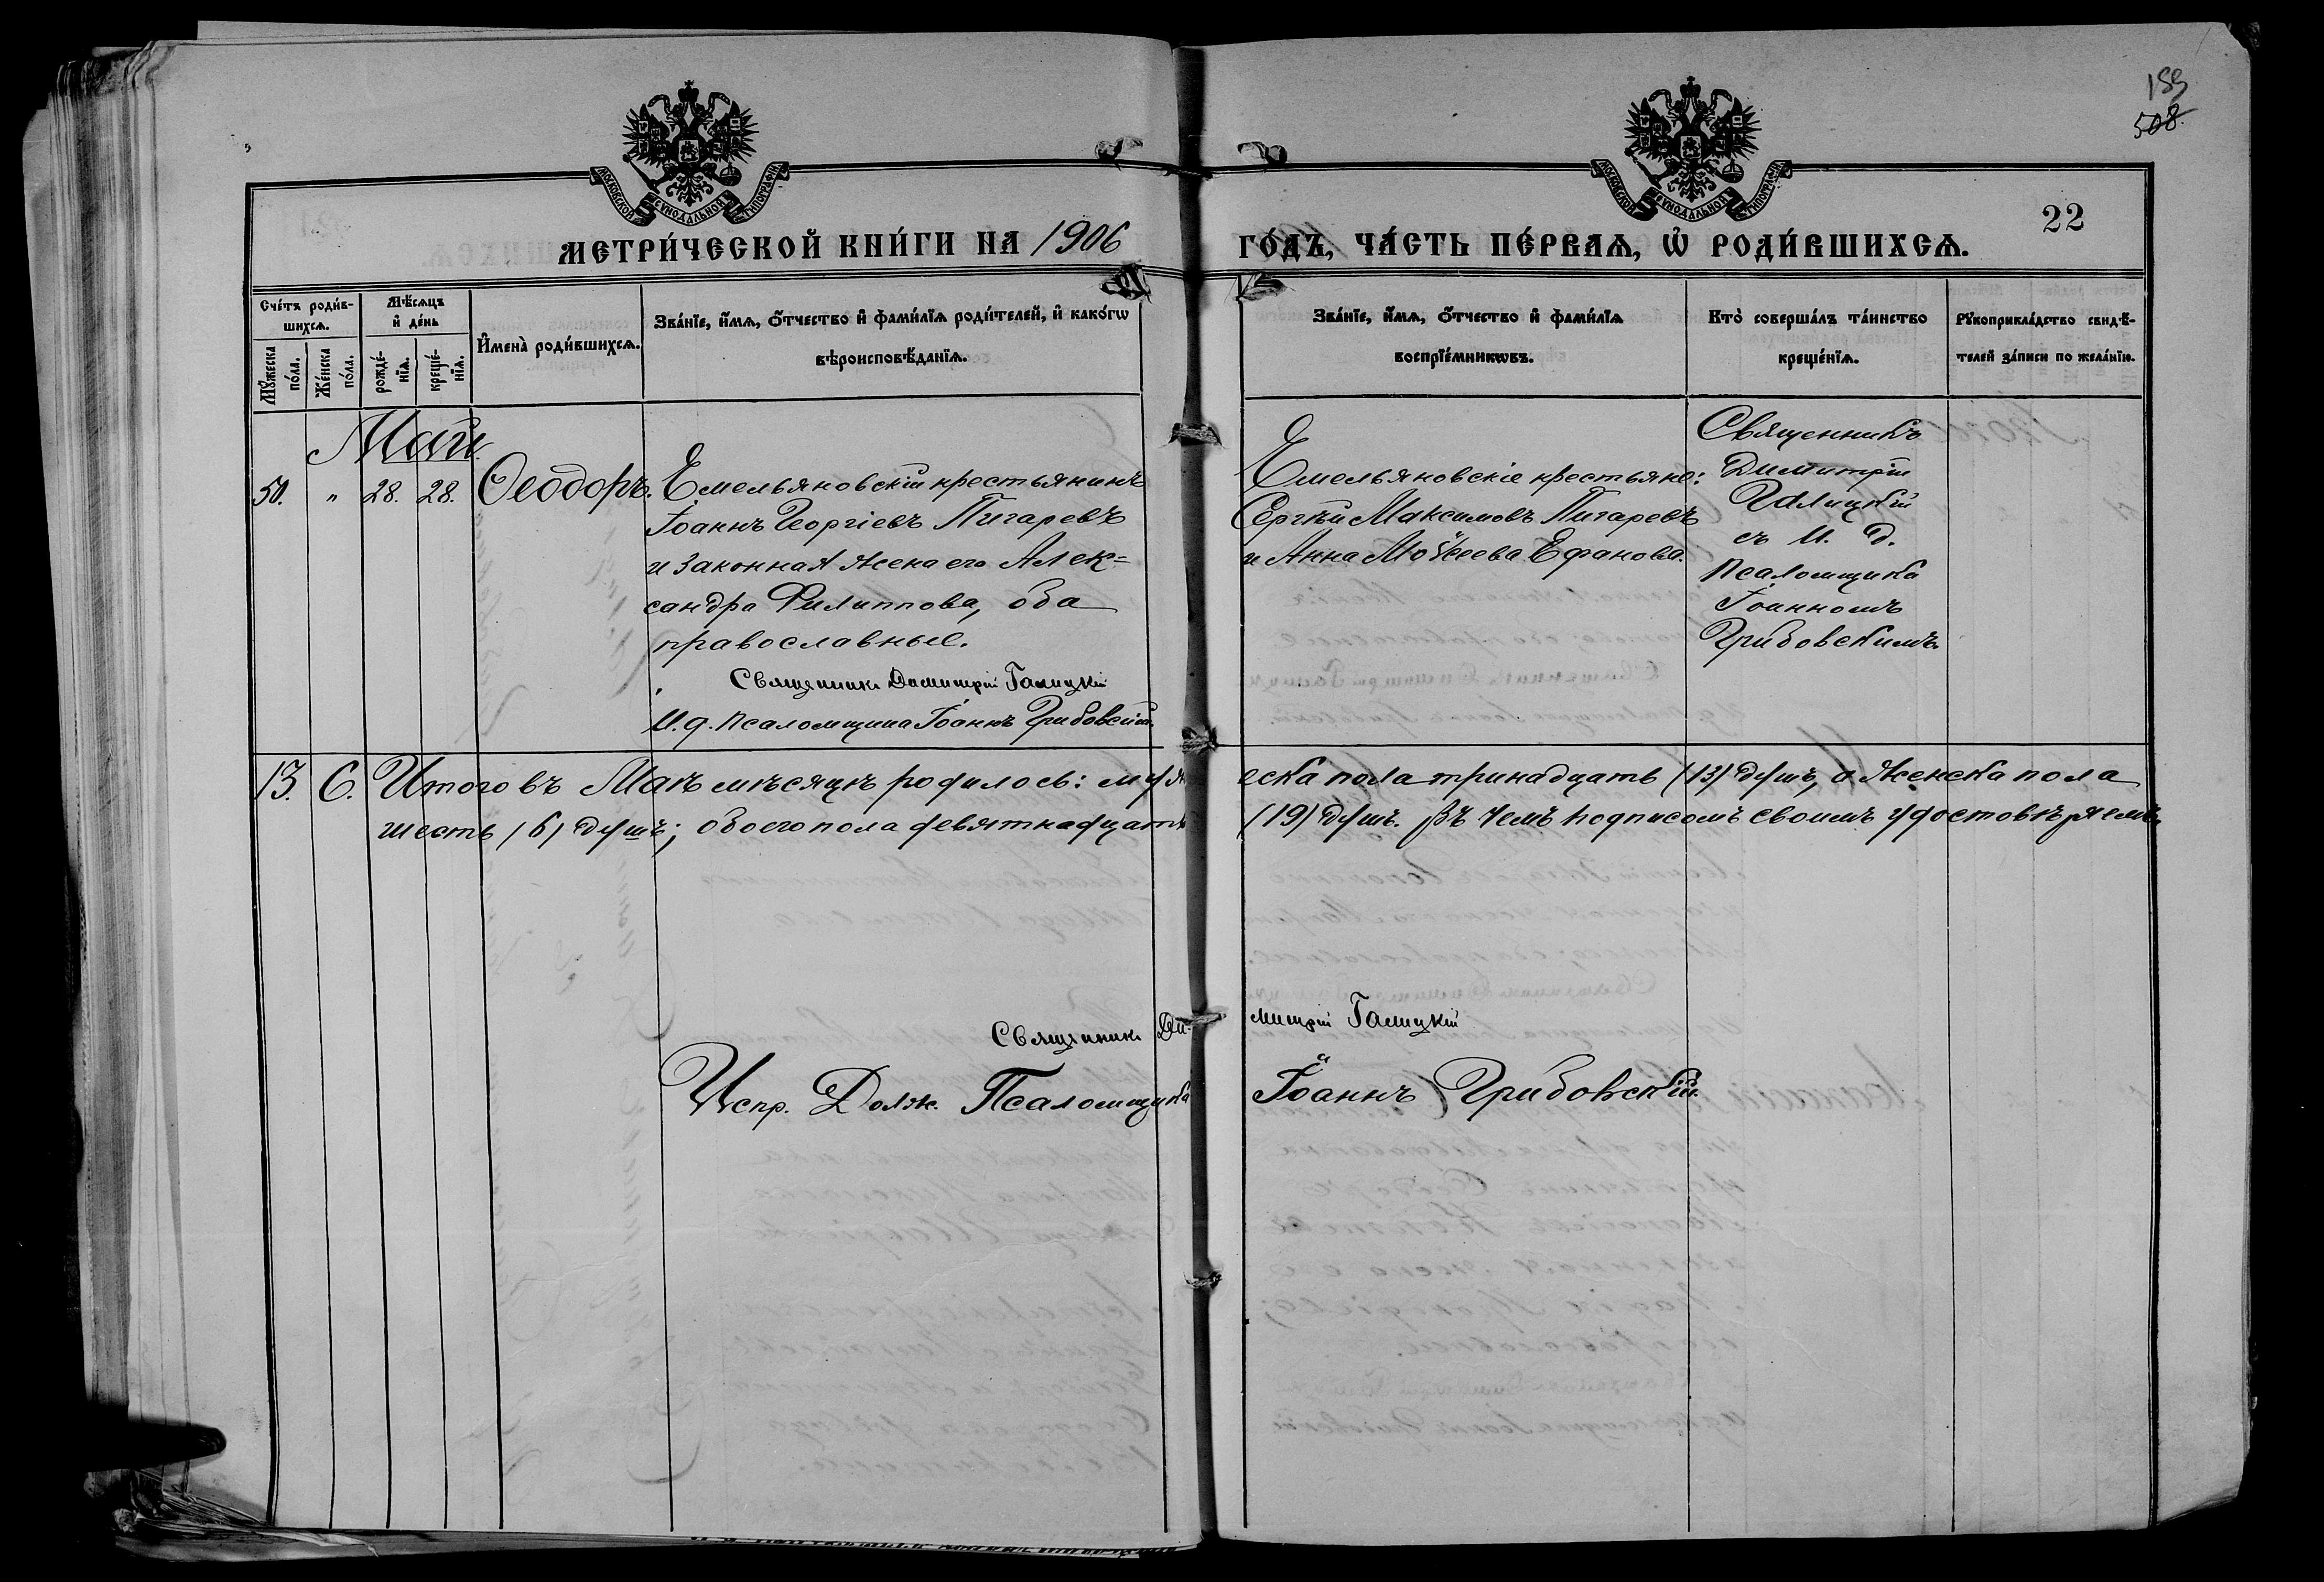 159
508.
МОСКОВСКОЙ СѴНОДАЛЬНОЙ ТИПОГРАФІИ
МОСКОВСКОЙ СѴНОДАЛЬНОЙ ТИПОГРАФІИ
22
МЕТРИ́ЧЕСКОЙ КНИ́ГИ НА 1906
ГО́ДЪ, ЧА́СТЬ ПЕ́РВАѦ, Ѡ҆ РОДИ́ВШИХСѦ.
Сче́тъ роди́в-
шихсѧ.
Мꙋ́жеска по́ла.
Же́нска по́ла.
Мѣ́сѧцъ
и҆ де́нь
рожде́-
нїѧ.
креще́-
нїѧ.
И҆мена̀ роди́вшихсѧ.
Зва́нїе, и҆́мѧ, ѻ҆́тчество и҆ фами́лїѧ роди́телей, и҆ како́гѡ
вѣроисповѣ́данїѧ.
Зва́нїе, и҆́мѧ, ѻ҆́тчество и҆ фами́лїѧ
воспрїе́мникѡвъ.
Кто̀ соверша́лъ та́инство
креще́нїѧ.
Рꙋкоприкла́дство свидѣ́-
телей за́писи по жела́нїю.
Май.
50. " 28. 28. Ѳеодоръ.
Емельяновскій крестьянинъ
Іоаннъ Георгіевъ Пигаревъ
и законная жена его Алек=
сандра Филиппова, оба
православные.
Священникъ Димитрій Галицкій
И. д. Псаломщика Іоаннъ Грибовскій.
Емельяновскіе крестьяне:
Сергѣй Максимовъ Пигаревъ
и Анна Моѵсеева Ефанова.
Священникъ
Димитрій
Галицкій
съ И. д.
Псаломщика
Іоанномъ
Грибовскимъ.
13. 6. Итого въ Маѣ мѣсяцѣ родилось: мужеска пола тринадцать (13) душъ, а женска пола
шесть (6) душъ; обоего пола девятнадцать (19) душъ. Въ чемъ подписомъ своимъ удостовѣряемъ.
Священникъ Димитрій Галицкій
Испр. Долж. Псаломщика Іоаннъ Грибовскій.